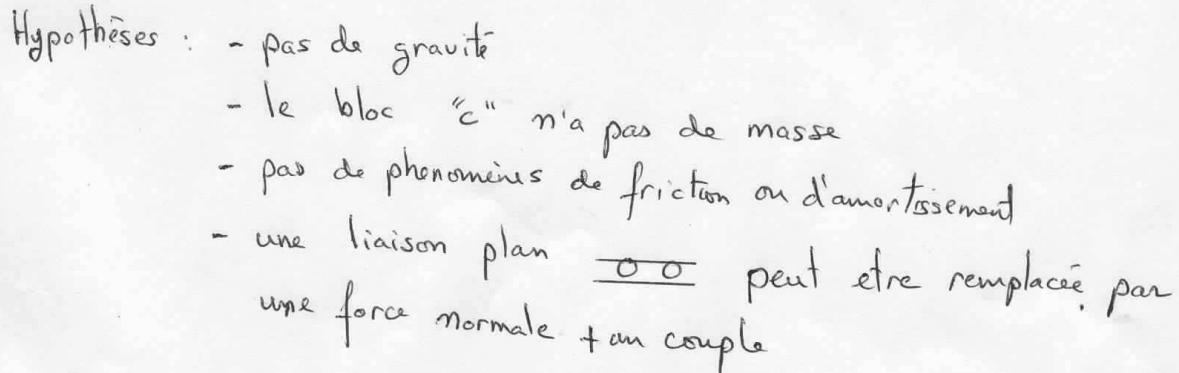 Hypothèses : - pas de gravité
- le bloc "c" n'a pas de masse
- pas de phenomènes de friction ou d'amortissement
- une liaison plan peut etre remplacée par
une force normale + un couple